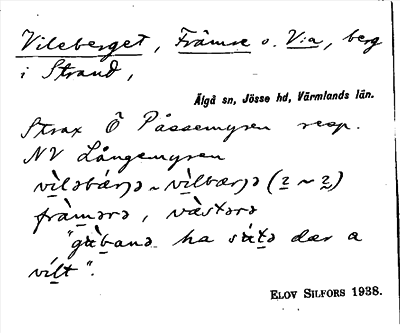 Vileberget, Främre o. V:a, berg
i Strand,
Älgå sn, Jösse hd, Värmlands län.
Strax Ö Påssemyren resp.
NV Långemyren
vìləbærjə ~ vìlbærjə (2 ~ 2)
fràmərə, vàstərə
"gùbanə ha sùtə dær a
vílt".
ELOV SILFORS 1938.